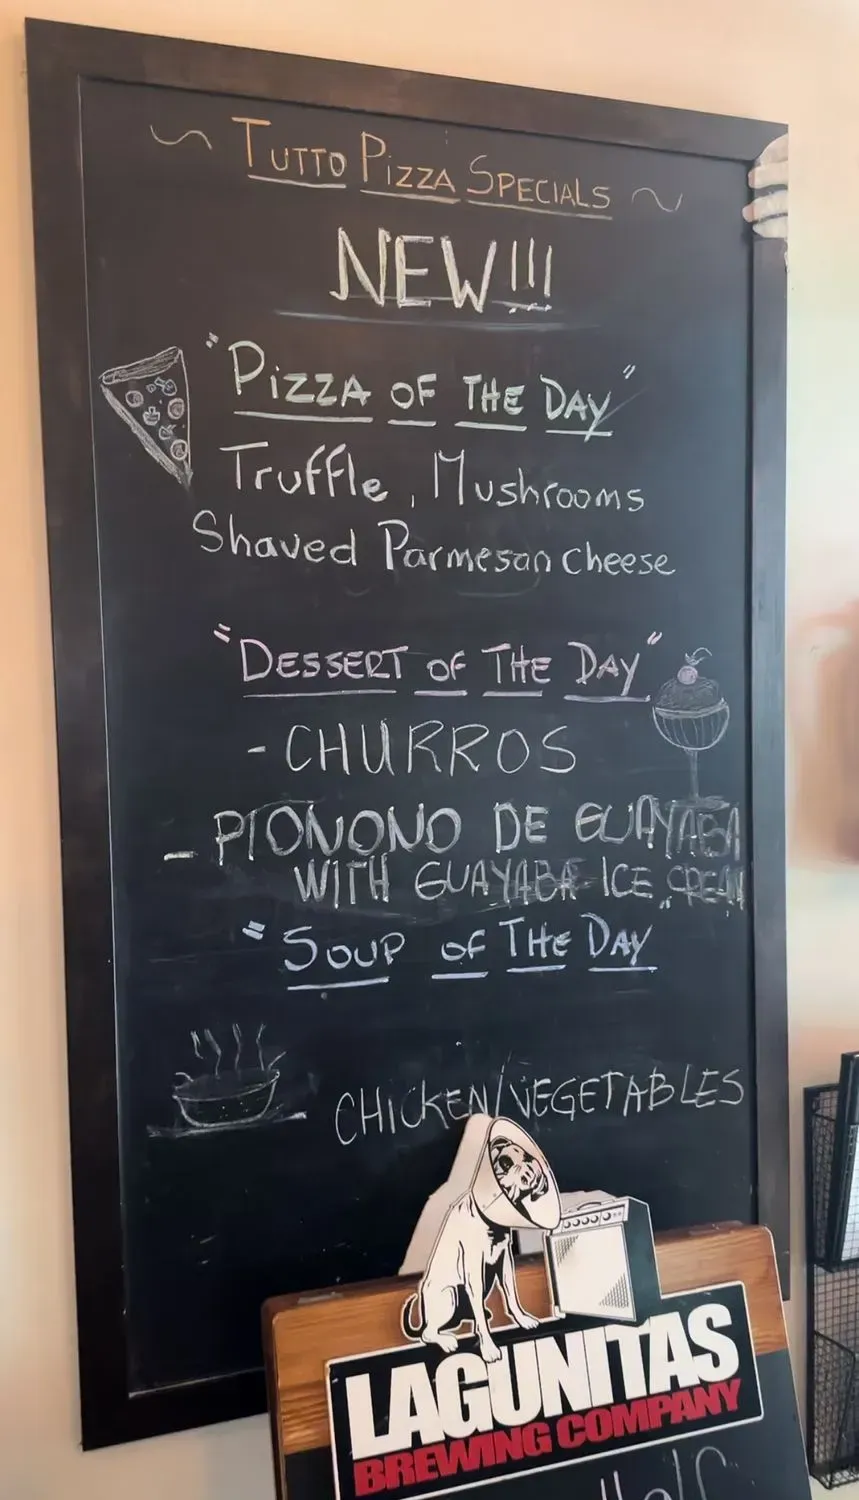 ~ TUTTO PIZZA SPECIALS ~
NEW!!!
"PIZZA OF THE DAY"
Truffle, Mushrooms
Shaved Parmesan cheese
"DESSERT OF THE DAY"
- CHURROS
- PIONONO DE GUAYABA
WITH GUAYABA ICE CREAM
"SOUP OF THE DAY"
CHICKEN/VEGETABLES
LAGUNITAS
BREWING COMPANY